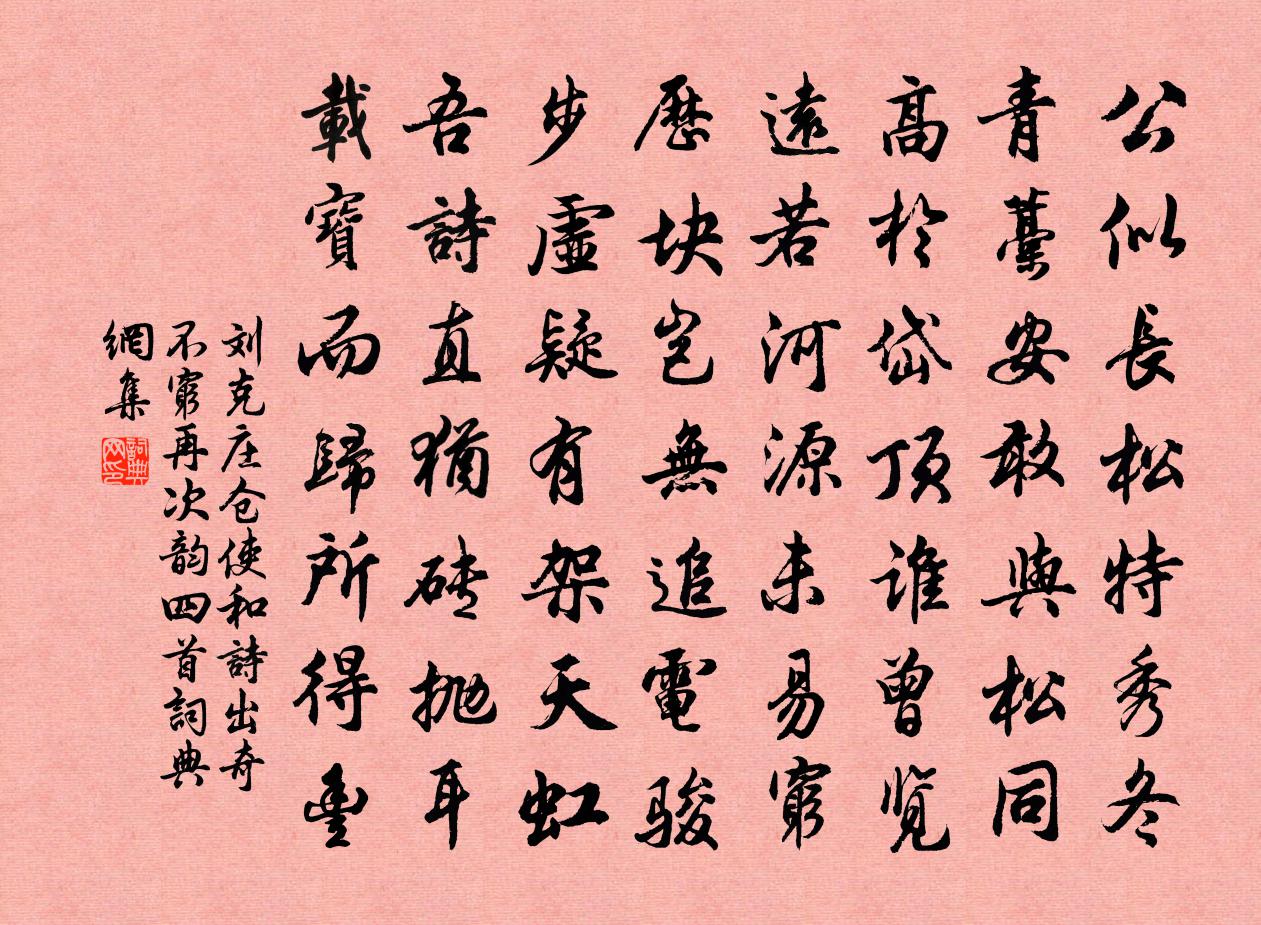 公似長松特秀冬
青藁安敢與松同
高於岱頂谁曾览
遠若河源未易窮
歷块岂無追電骏
步虛疑有架天虹
吾詩直猶砖抛耳
載寶而歸所得豊
刘克庄仓使和詩出奇
不窮再次韵四首詞典
網集
詞典网印